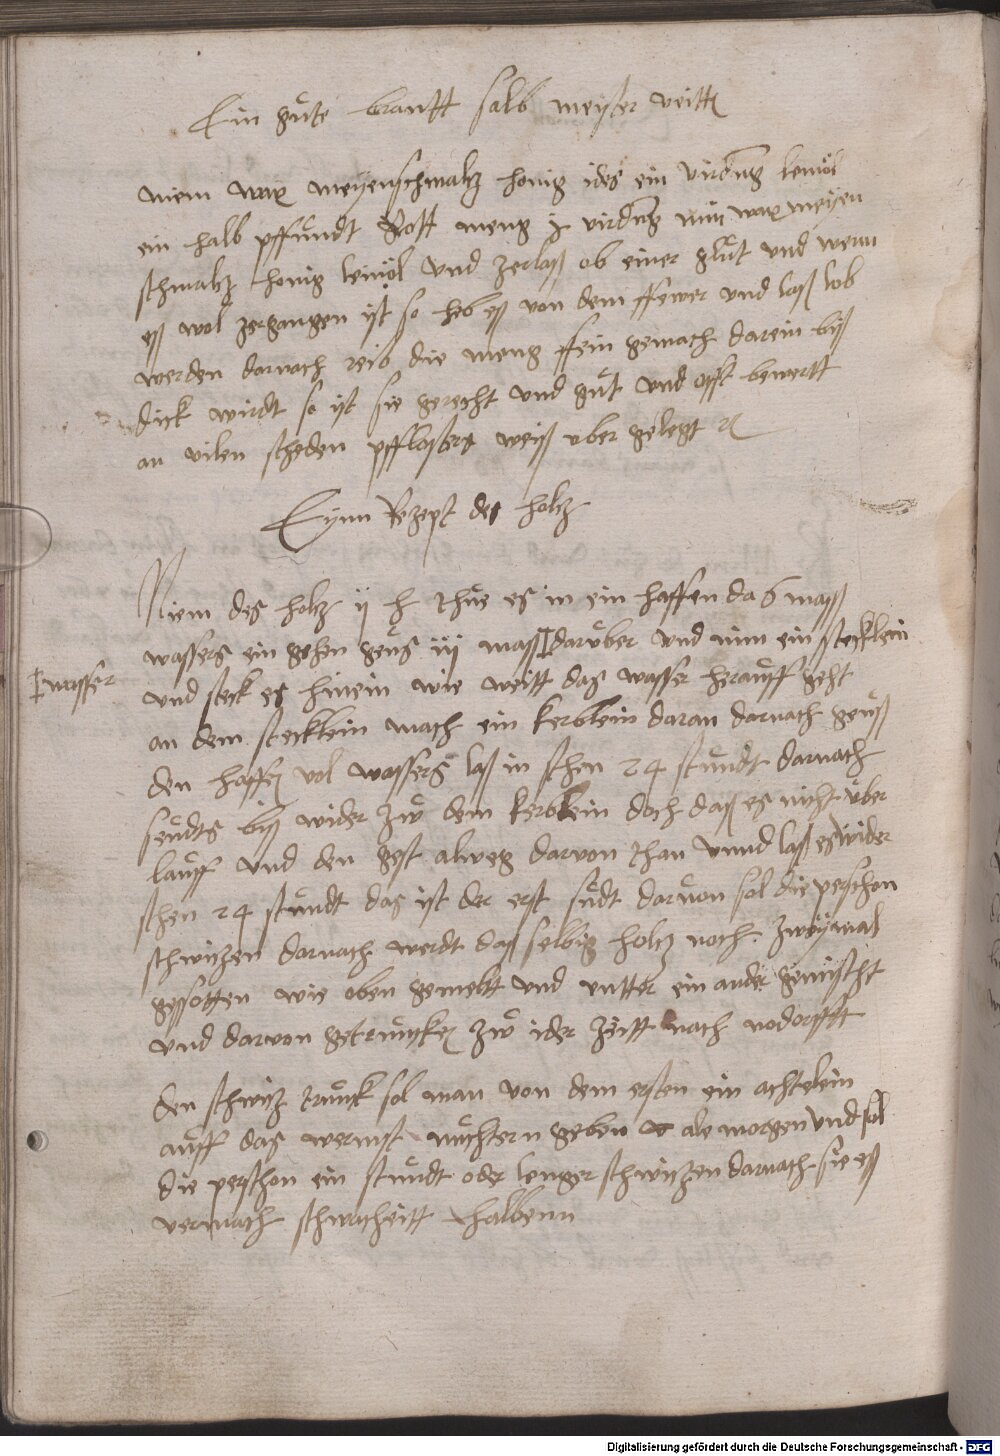 Ein gůte brantt salb meyster veitt
niem wax meyenschmaltz honig ides ein virdung leinöl
ein halb pffundt Rott meng j virdung nim wax meyen
schmaltz honig leinöl vnd zerlaß ob einer glůt vnd wenn
eß wol zergangen ist so heb eß von dem ffewer vnd laß lob
werden darnach reib die meng ffein gemach darein biß
dick wirdt so ist sie gerecht vnd gůt vnd offt bewertt
an vilen scheden pfflasters weiß vber gelegt
Eynn Rezept des holtz
Niem des holtz ij thue es in ein haffen da 6 mass
wassers ein gehen geus iij mass darüber vnd nim ein stecklein
wasser
vnd steck es hinein wie weitt das wasser herauff geht
an dem stecklein mach ein kerblein daran darnach geuß
den haffen vol wassers laß in sthen 24 stundt darnach
seudts biß wider zw dem kerblein doch daß es nicht über
lauff vnd den gest alweg darvon than vnnd laß es wider
sthen 24 stundt das ist der erst sudt daruon sol die perschon
schwitzen darnach werdt daß selbig holtz noch zweymal
gessotten wie oben gemeltt vnd vntter ein ander gemischt
vnd darvon getruncken zw ider zeitt nach nodorfftt
den schwitz trunck sol man von dem ersten ein achtelein
auff das wermst nuchtern geben ale morgen vnd sol
die perschon ein stundt oder lenger schwitzen darnach sie eß
vermach schwacheitt halbenn
Digitalisierung gefördert durch die Deutsche Forschungsgemeinschaft - DFG